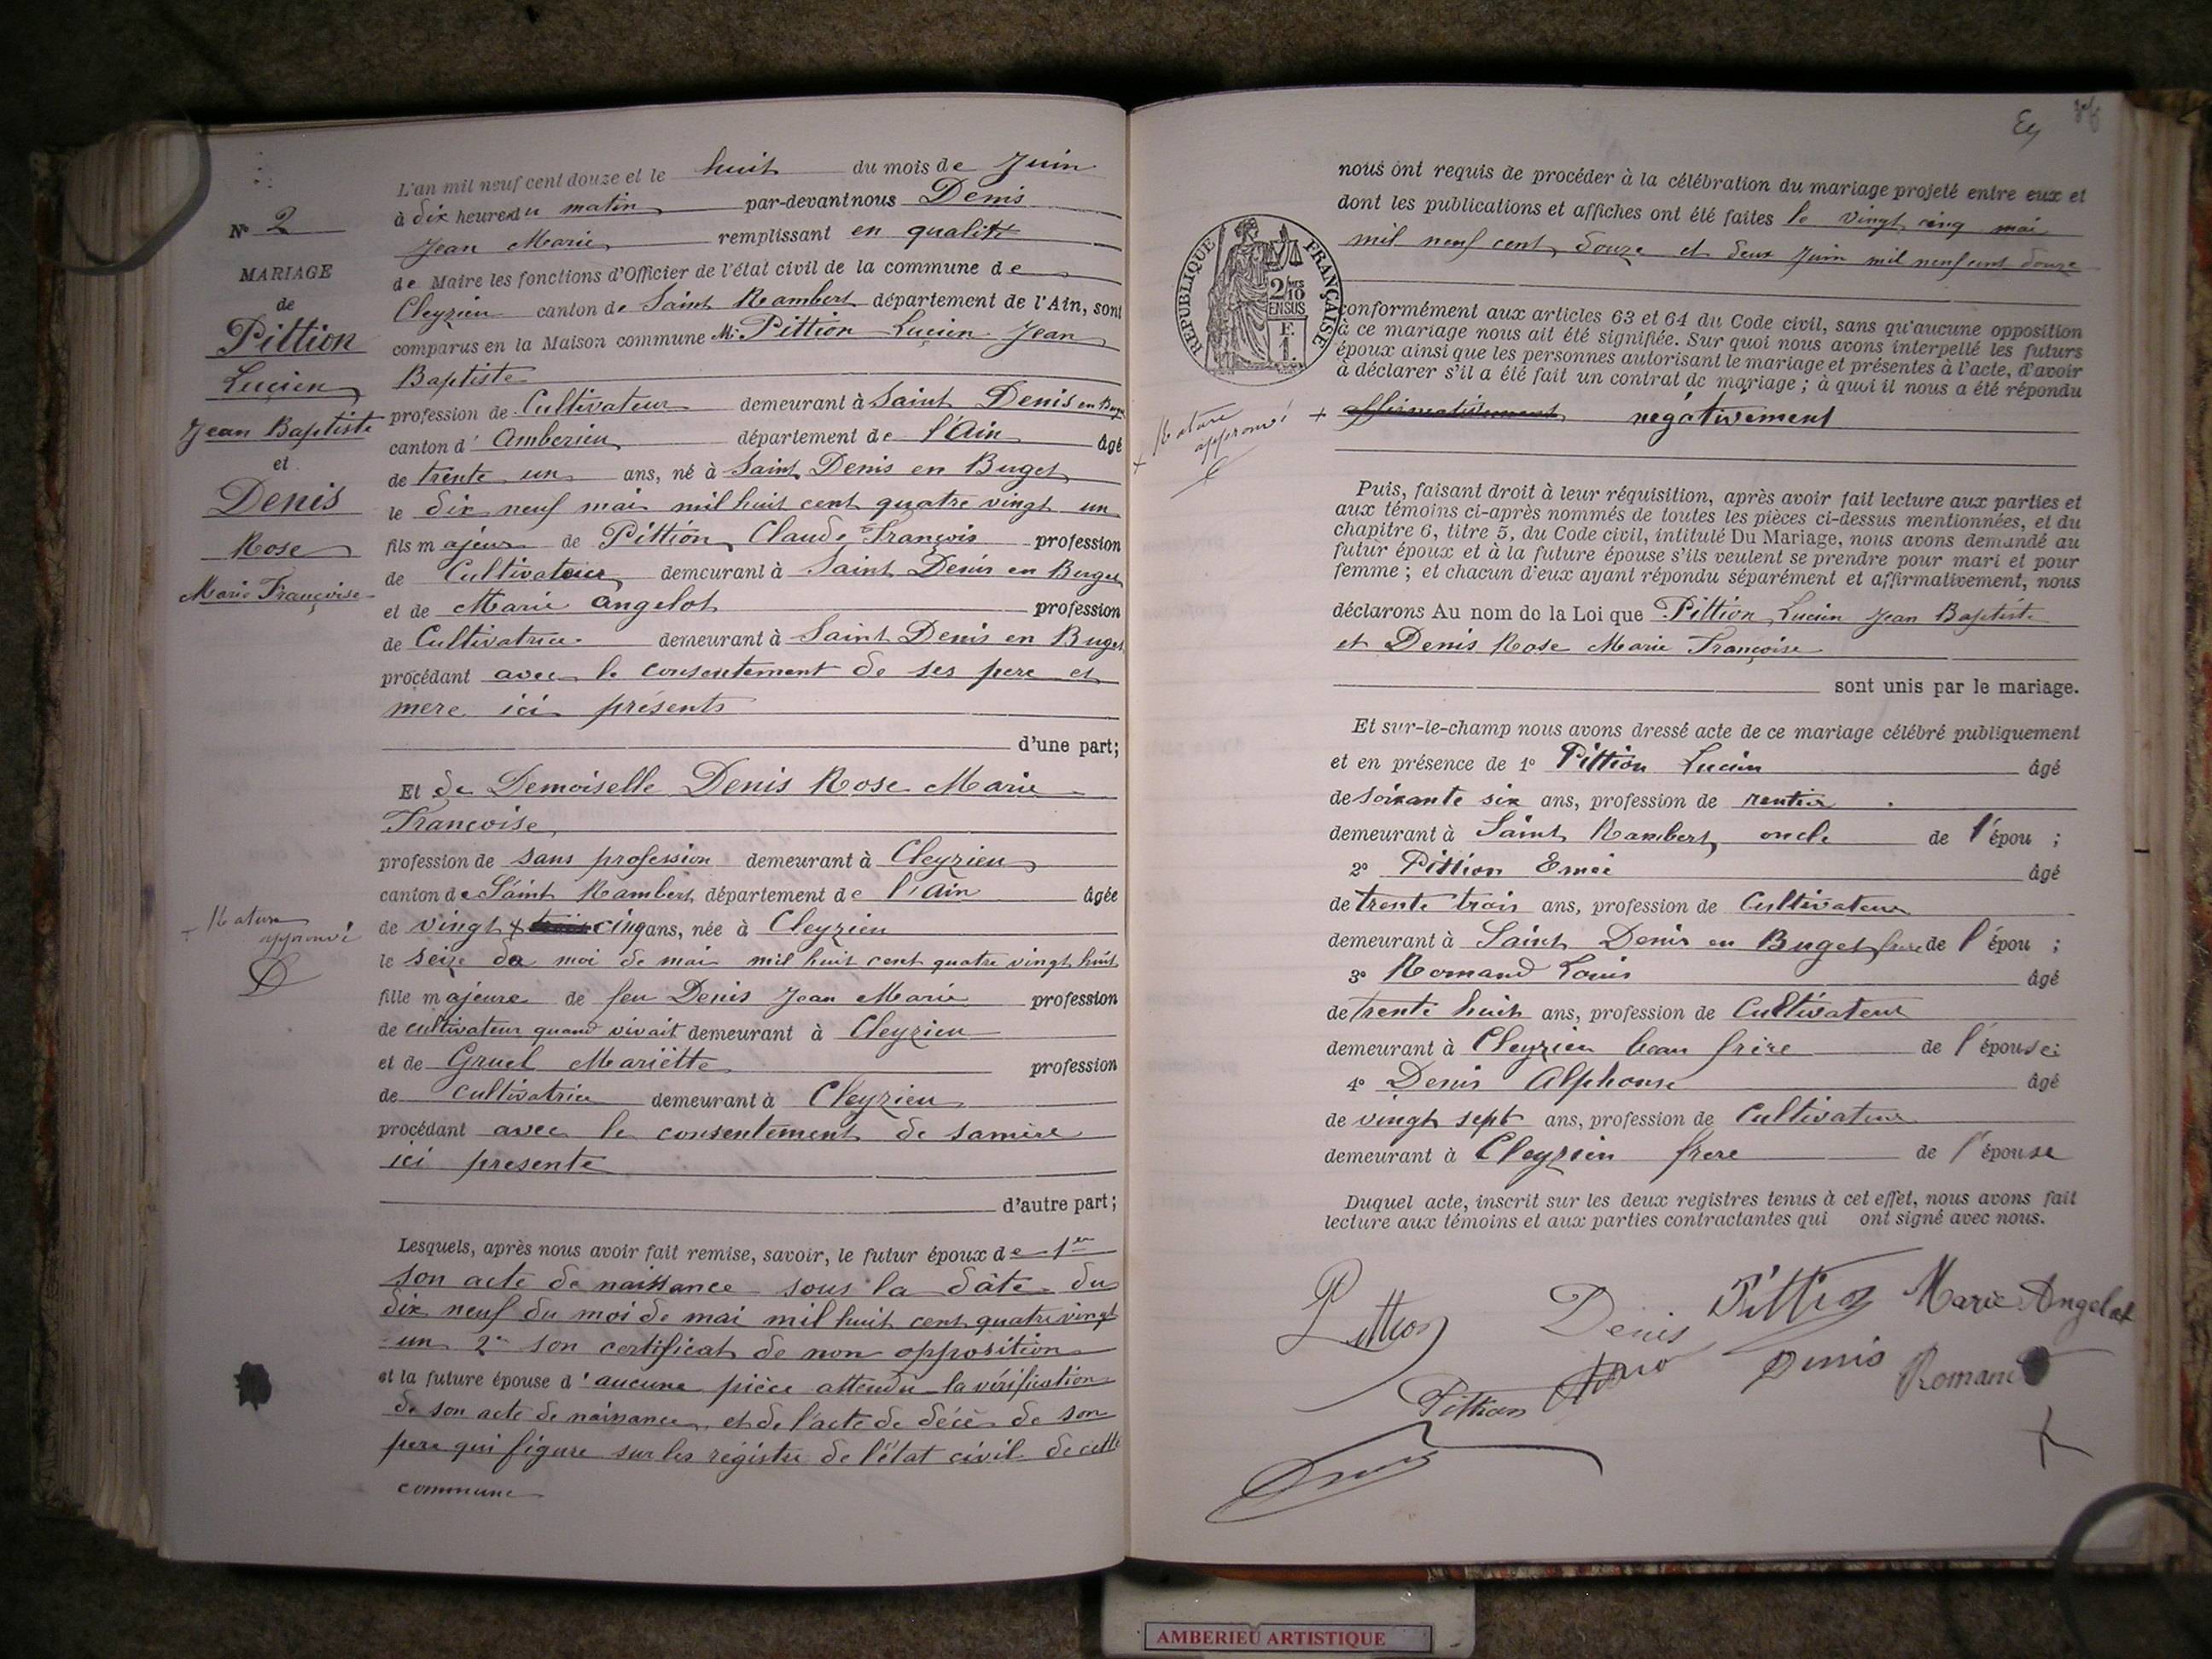 N° 2
MARIAGE
de
Pittion
Lucien
Jean Baptiste
et
Denis
Rose
Marie Françoise
L'an mil neuf cent douze et le huit du mois de Juin
à dix heures du matin par-devant nous Denis
Jean Marie remplissant en qualité
de Maire les fonctions d'Officier de l'état civil de la commune de
Cleyzieu canton de Saint Rambert département de l'Ain, sont
comparus en la Maison commune Mr Pittion Lucien Jean
Baptiste
profession de Cultivateur demeurant à Saint Denis en Buget
canton d'Amberieu département de l'Ain âgé
de trente un ans, né à Saint Denis en Buget
le dix neuf mai mil huit cent quatre vingt un
fils majeur de Pittion Claude François profession
de Cultivateur demeurant à Saint Denis en Buget
et de Marie Angelot profession
de Cultivatrice demeurant à Saint Denis en Buget
procédant avec le consentement de ses pere et
mere ici présents
d'une part;
Et de Demoiselle Denis Rose Marie
Françoise
profession de sans profession demeurant à Cleyzieu
canton de Saint Rambert département de l'Ain âgée
+ Rature
approuvé
D
de vingt + trois cinq ans, née à Cleyzieu
le seize du moi de mai mil huit cent quatre vingt huit
fille majeure de feu Denis Jean Marie profession
de cultivateur quand vivait demeurant à Cleyzieu
et de Gruel Mariëtte profession
de cultivatrice demeurant à Cleyzieu
procédant avec le consentement de sa mère
ici presente
d'autre part;
Lesquels, après nous avoir fait remise, savoir, le futur époux de 1er
son acte de naissance sous la dâte du
dix neuf du moi de mai mil huit cent quatre vingt
un 2e son certificat de non opposition
et la future épouse d'aucune pièce attendu la vérification
de son acte de naissance et de l'acte de décè de son
pere qui figure sur les régistre de l'état civil de cette
commune
nous ont requis de procéder à la célébration du mariage projeté entre eux et
dont les publications et affiches ont été faites le vingt cinq mai
mil neuf cent douze et deux Juin mil neuf cent douze
RÉPUBLIQUE FRANÇAISE
2/10 EN SUS
F.
1.
conformément aux articles 63 et 64 du Code civil, sans qu'aucune opposition
à ce mariage nous ait été signifiée. Sur quoi nous avons interpellé les futurs
époux ainsi que les personnes autorisant le mariage et présentes à l'acte, d'avoir
à déclarer s'il a été fait un contrat de mariage; à quoi il nous a été répondu
+ affirmativement négativement
+ Rature
approuvé
Puis, faisant droit à leur réquisition, après avoir fait lecture aux parties et
aux témoins ci-après nommés de toutes les pièces ci-dessus mentionnées, et du
chapitre 6, titre 5, du Code civil, intitulé Du Mariage, nous avons demandé au
futur époux et à la future épouse s'ils veulent se prendre pour mari et pour
femme; et chacun d'eux ayant répondu séparément et affirmativement, nous
déclarons Au nom de la Loi que Pittion Lucien Jean Baptiste
et Denis Rose Marie Françoise
sont unis par le mariage.
Et sur-le-champ nous avons dressé acte de ce mariage célébré publiquement
et en présence de 1° Pittion Lucien âgé
de soixante six ans, profession de rentier
demeurant à Saint Rambert oncle de l'épou ;
2° Pittion Emée âgé
de trente trois ans, profession de Cultivateur
demeurant à Saint Denis en Buget frere de l'épou ;
3° Romand Louis âgé
de trente huit ans, profession de Cultivateur
demeurant à Cleyzieu beau frère de l'épouse;
4° Denis Alphonse âgé
de vingt sept ans, profession de Cultivateur
demeurant à Cleyzieu frere de l'épouse
Duquel acte, inscrit sur les deux registres tenus à cet effet, nous avons fait
lecture aux témoins et aux parties contractantes qui ont signé avec nous.
Pittion Denis Pittion Marie Angelot
Pittion Denis Romand
AMBERIEU ARTISTIQUE